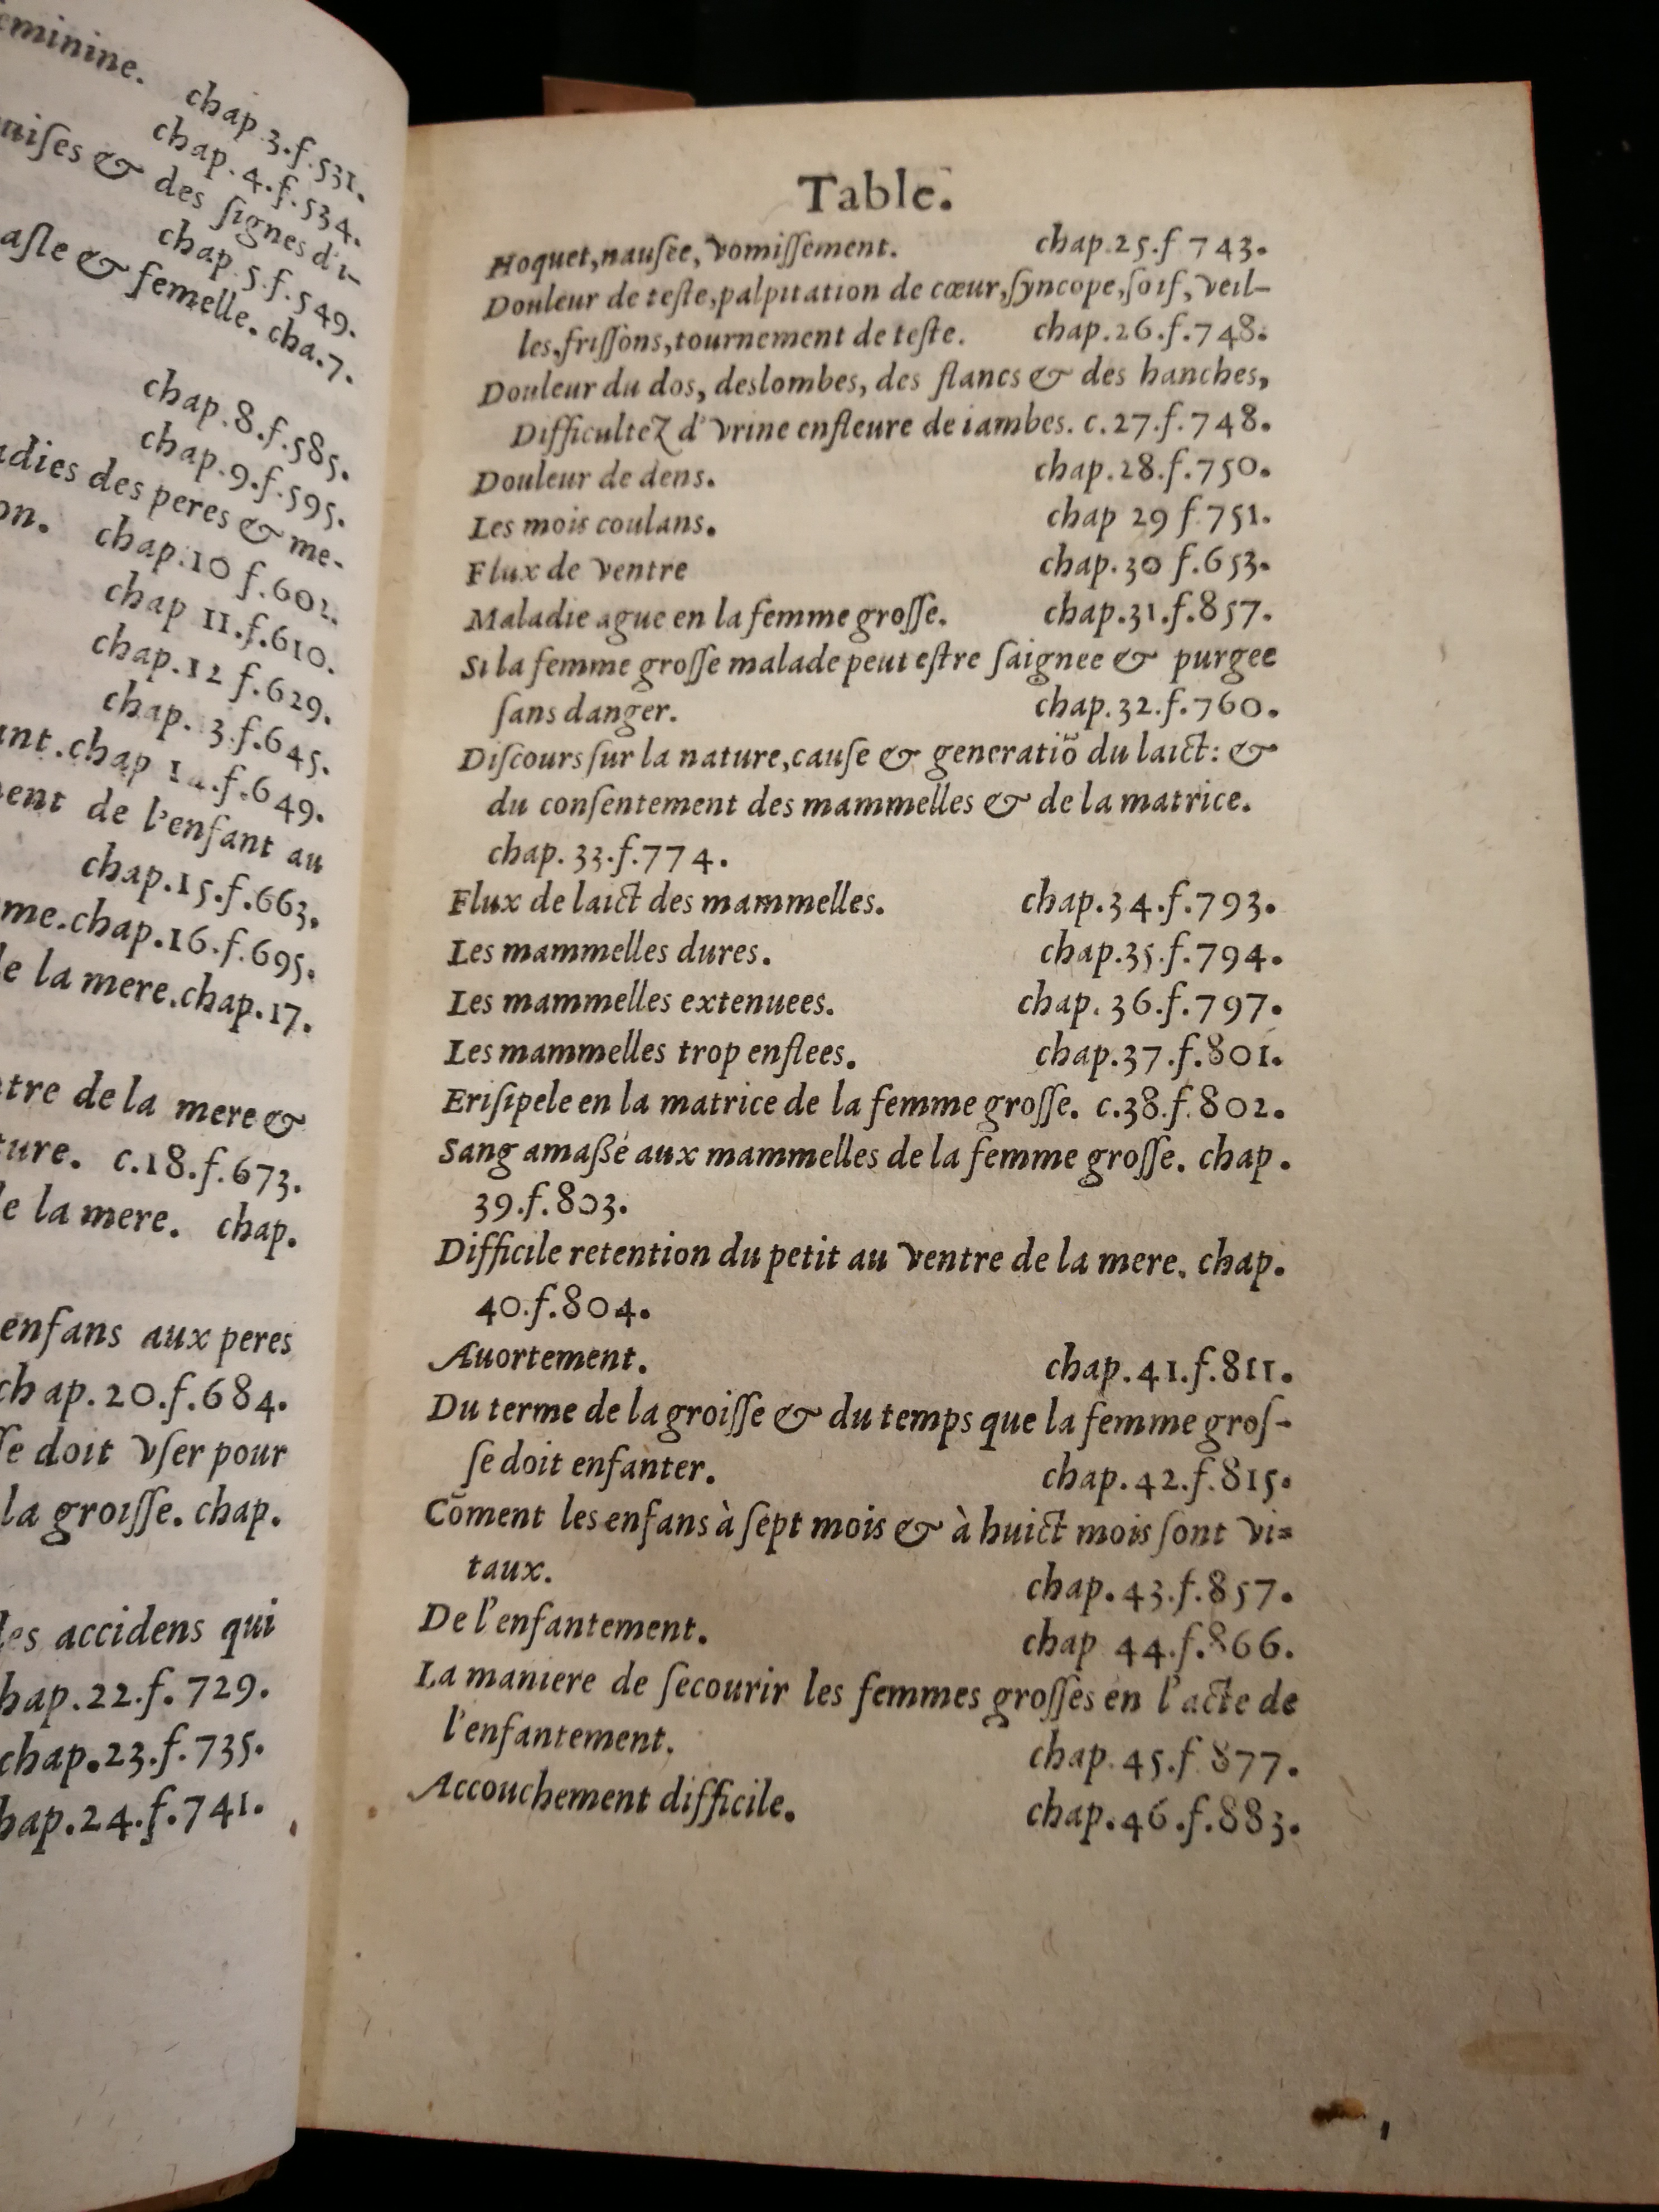 eminine.
chap.3.f.531.
chap.4.f.534.
aiſes & des ſignes d'i-
chap.5.f.549.
aſle & femelle. cha.7.
chap.8.f.585.
chap.9.f.595.
adies des peres & me-
on. chap.10 f.602.
chap 11.f.610.
chap.12 f.629.
chap. 3.f.645.
ant.chap 14.f.649.
ent de l'enfant au
chap.15.f.663.
me.chap.16.f.695.
le la mere.chap.17.
tre de la mere &
ture. c.18.f.673.
le la mere. chap.
enfans aux peres
chap.20.f.684.
ſe doit vſer pour
la groiſſe. chap.
les accidens qui
hap.22.f.729.
chap.23.f.735.
hap.24.f.741.
Table.
Hoquet,nauſée, vomiſſement. chap.25.f 743.
Douleur de teſte,palpitation de cœur,ſyncope,ſoif, veil-
les,friſſons,tournement de teſte. chap.26.f.748.
Douleur du dos, deslombes, des flancs & des hanches,
Difficultez d'vrine enfleure de iambes. c.27.f.748.
Douleur de dens. chap.28.f.750.
Les mois coulans. chap 29 f 751.
Flux de ventre chap.30 f.653.
Maladie ague en la femme groſſe. chap.31.f.857.
Si la femme groſſe malade peut eſtre ſaignee & purgee
ſans danger. chap.32.f.760.
Diſcours ſur la nature,cauſe & generatiõ du laict: &
du conſentement des mammelles & de la matrice.
chap. 33.f.774.
Flux de laict des mammelles. chap.34.f.793.
Les mammelles dures. chap.35.f.794.
Les mammelles extenuees. chap. 36.f.797.
Les mammelles trop enflees. chap.37.f.801.
Eriſipele en la matrice de la femme groſſe. c.38.f.802.
Sang amaßé aux mammelles de la femme groſſe. chap.
39.f.803.
Difficile retention du petit au ventre de la mere. chap.
40.f.804.
Auortement. chap.41.f.811.
Du terme de la groiſſe & du temps que la femme groſ-
ſe doit enfanter. chap.42.f.815.
Cõment les enfans à ſept mois & à huict mois ſont vi-
taux. chap.43.f.857.
De l'enfantement. chap 44.f.866.
La maniere de ſecourir les femmes groſſes en l'acte de
l'enfantement. chap.45.f 877.
Accouchement difficile. chap.46.f.883.